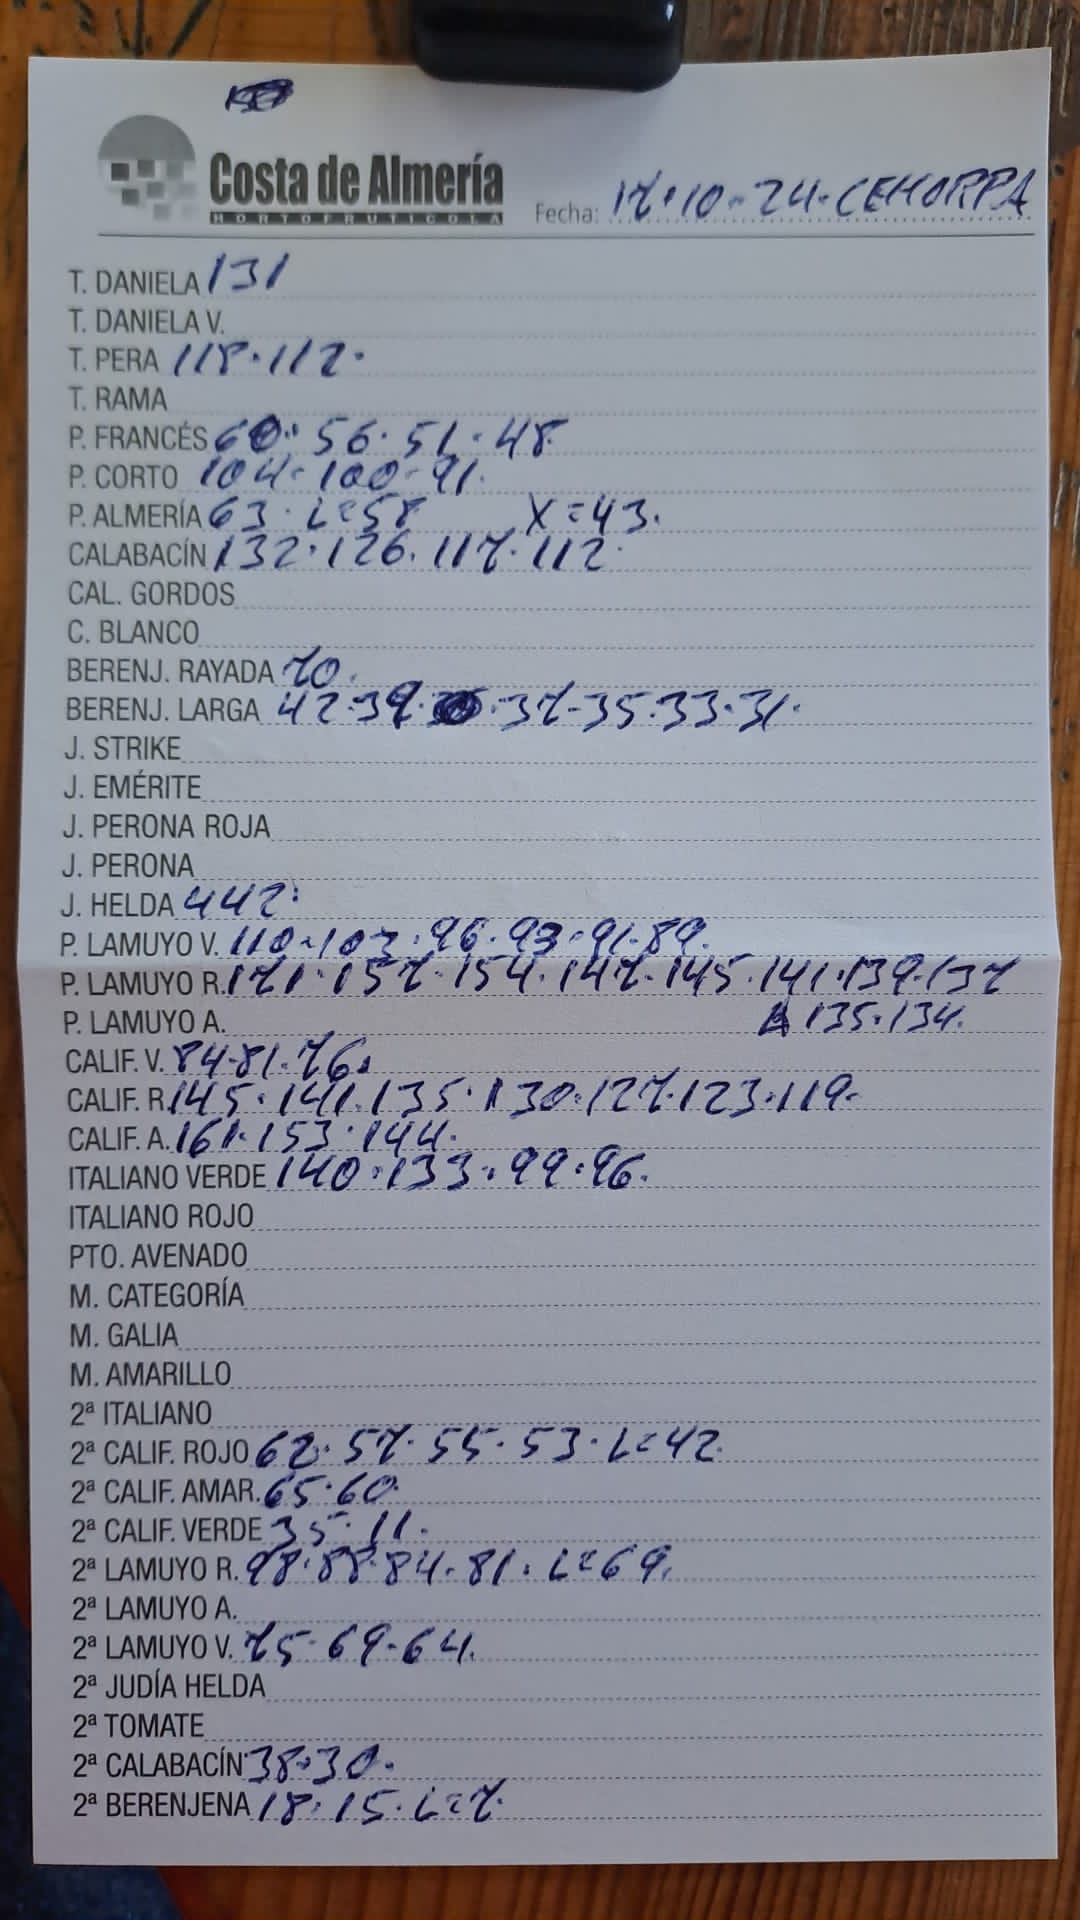 Costa de Almería
HORTOFRUTICOLA
Fecha: 17·10-24·CEHORPA
T. DANIELA 131
T. DANIELA V.
T. PERA 118·112·
T. RAMA
P. FRANCÉS 60·56·51·48·
P. CORTO 104-100-91.
P. ALMERÍA 63·L=58 X=43.
CALABACÍN 132·126·117·112·
CAL. GORDOS
C. BLANCO
BERENJ. RAYADA 70·
BERENJ. LARGA 42·39·37-35·33·31·
J. STRIKE
J. EMÉRITE
J. PERONA ROJA
J. PERONA
J. HELDA 442·
P. LAMUYO V. 110-103·96·93·91·89.
P. LAMUYO R. 171·157·154·147·145·141·139·137
P. LAMUYO A. 135·134.
CALIF. V. 84-81·76.
CALIF. R. 145·141·135·130·127·123·119·
CALIF. A. 161·153·144·
ITALIANO VERDE 140·133·99·96.
ITALIANO ROJO
PTO. AVENADO
M. CATEGORÍA
M. GALIA
M. AMARILLO
2ª ITALIANO
2ª CALIF. ROJO 62·57·55·53·L=42·
2ª CALIF. AMAR. 65·60·
2ª CALIF. VERDE 35·11.
2ª LAMUYO R. 98·88·84·81·L=69.
2ª LAMUYO A.
2ª LAMUYO V. 75·69·64.
2ª JUDÍA HELDA
2ª TOMATE
2ª CALABACÍN 38·30·
2ª BERENJENA 18·15·L=7·